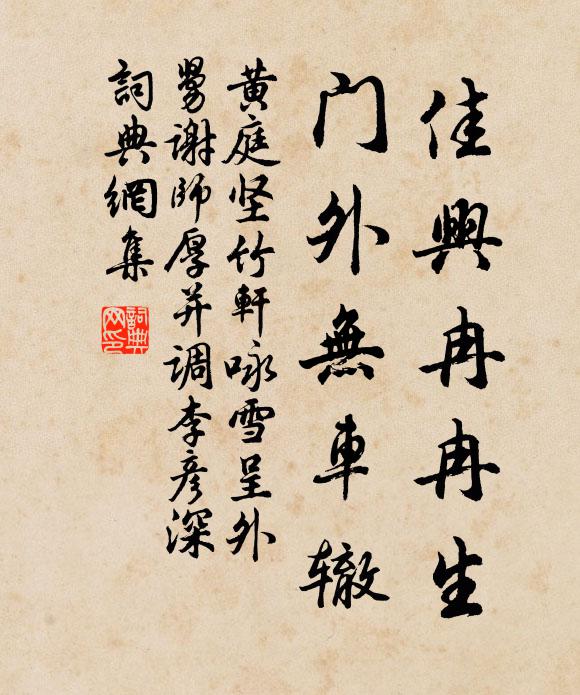 佳興冉冉生
门外無車辙
黃庭坚竹軒咏雪呈外
舅谢師厚并調李彦深
詞典網集
詞典网印